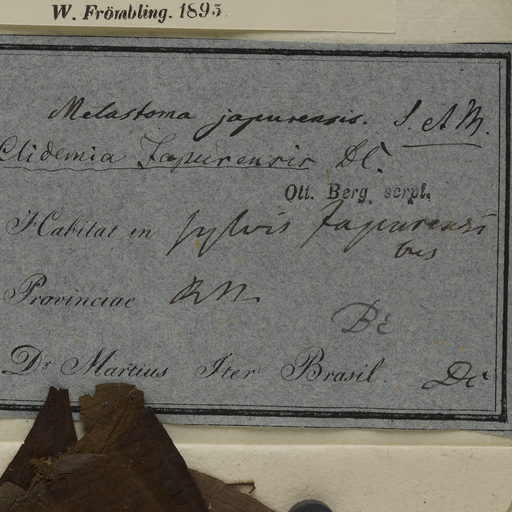 W. Frömbling. 1895.
Melastoma japurensis. S. A M.
Clidemia Japurensis DC.
Ott. Berg scrpt.
Habitat in sylvis Japurensi
bus
Provinciae R N.
Dr Martius Iter Brasil. DC